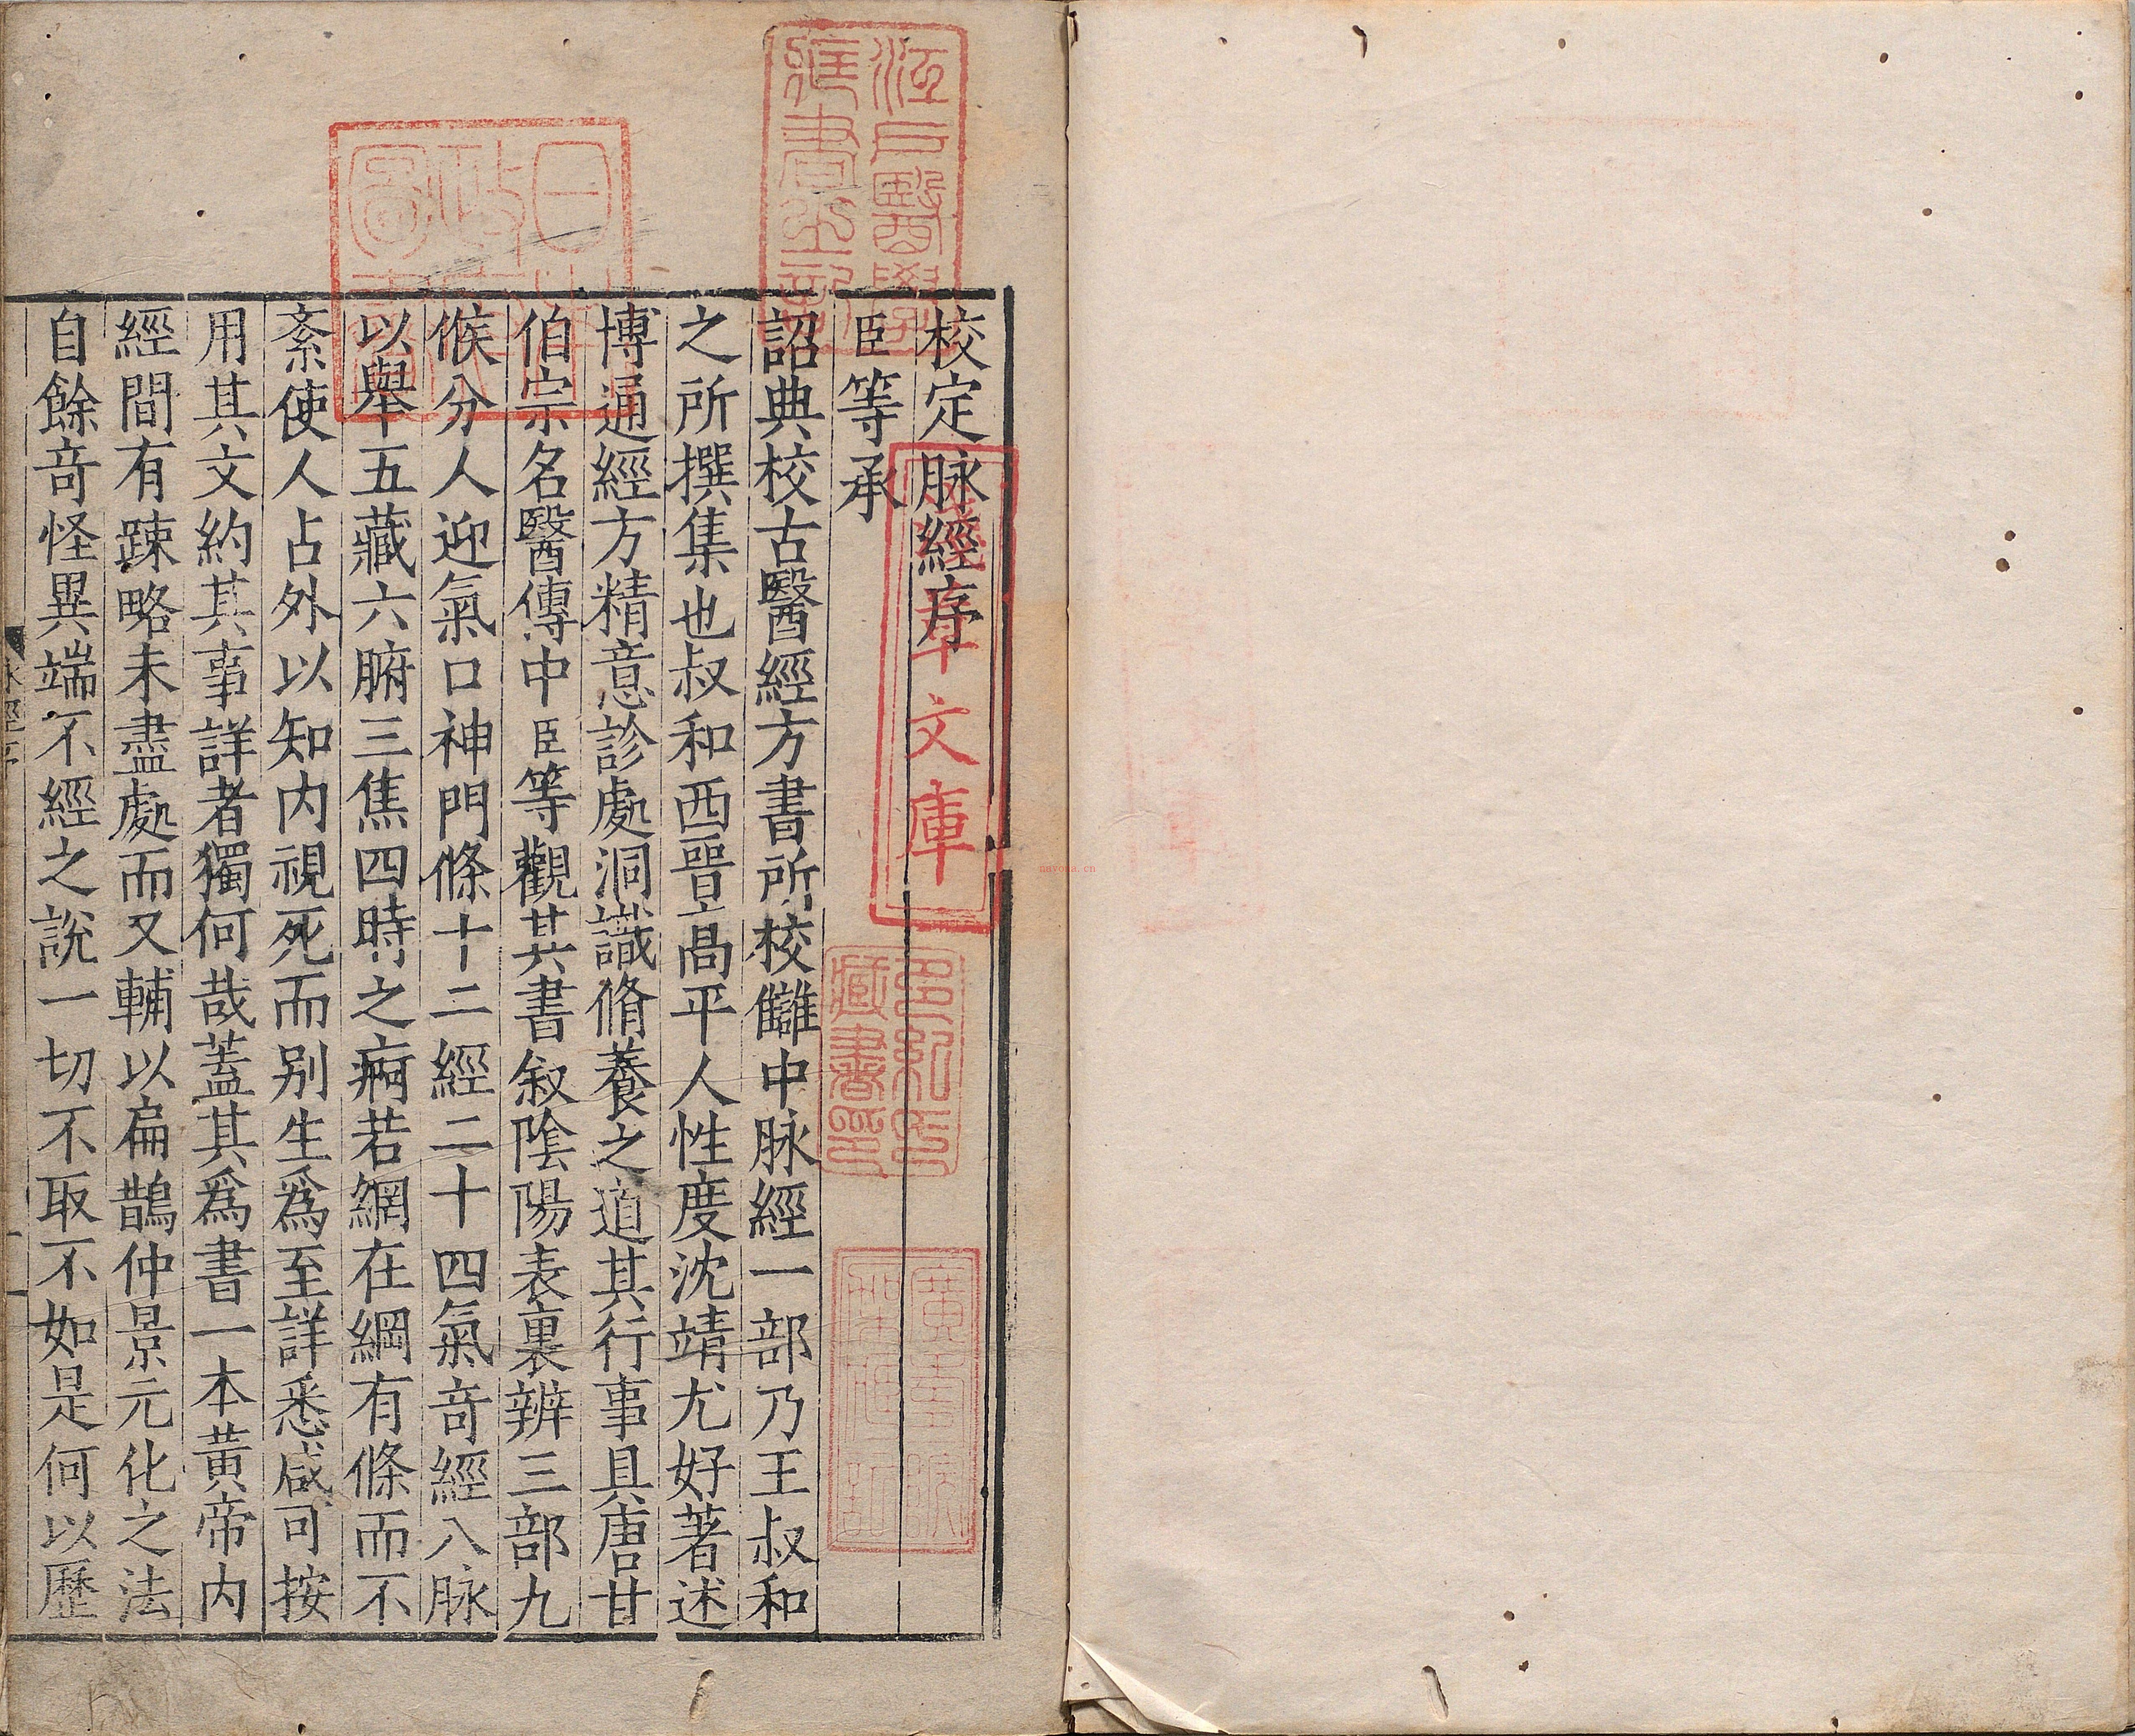 校定脉經序
臣等承
詔典校古醫經方書所校讎中脉經一部乃王叔和
之所撰集也叔和西晉高平人性度沈靖尤好著述
博通經方精意診處洞識脩養之道其行事具唐甘
伯宗名醫傳中臣等觀其書叙陰陽表裏辨三部九
候分人迎氣口神門條十二經二十四氣竒經八脉
以舉五藏六腑三焦四時之痾若網在綱有條而不
紊使人占外以知内視死而别生爲至詳悉咸可按
用其文約其事詳者獨何哉蓋其爲書一本黄帝内
經間有踈略未盡處而又輔以扁鵲仲景元化之法
自餘竒怪異端不經之說一切不取不如是何以歷
江戶醫學
藏書之記
日本
政府
圖書
文庫
多紀氏
藏書印
navona.cn